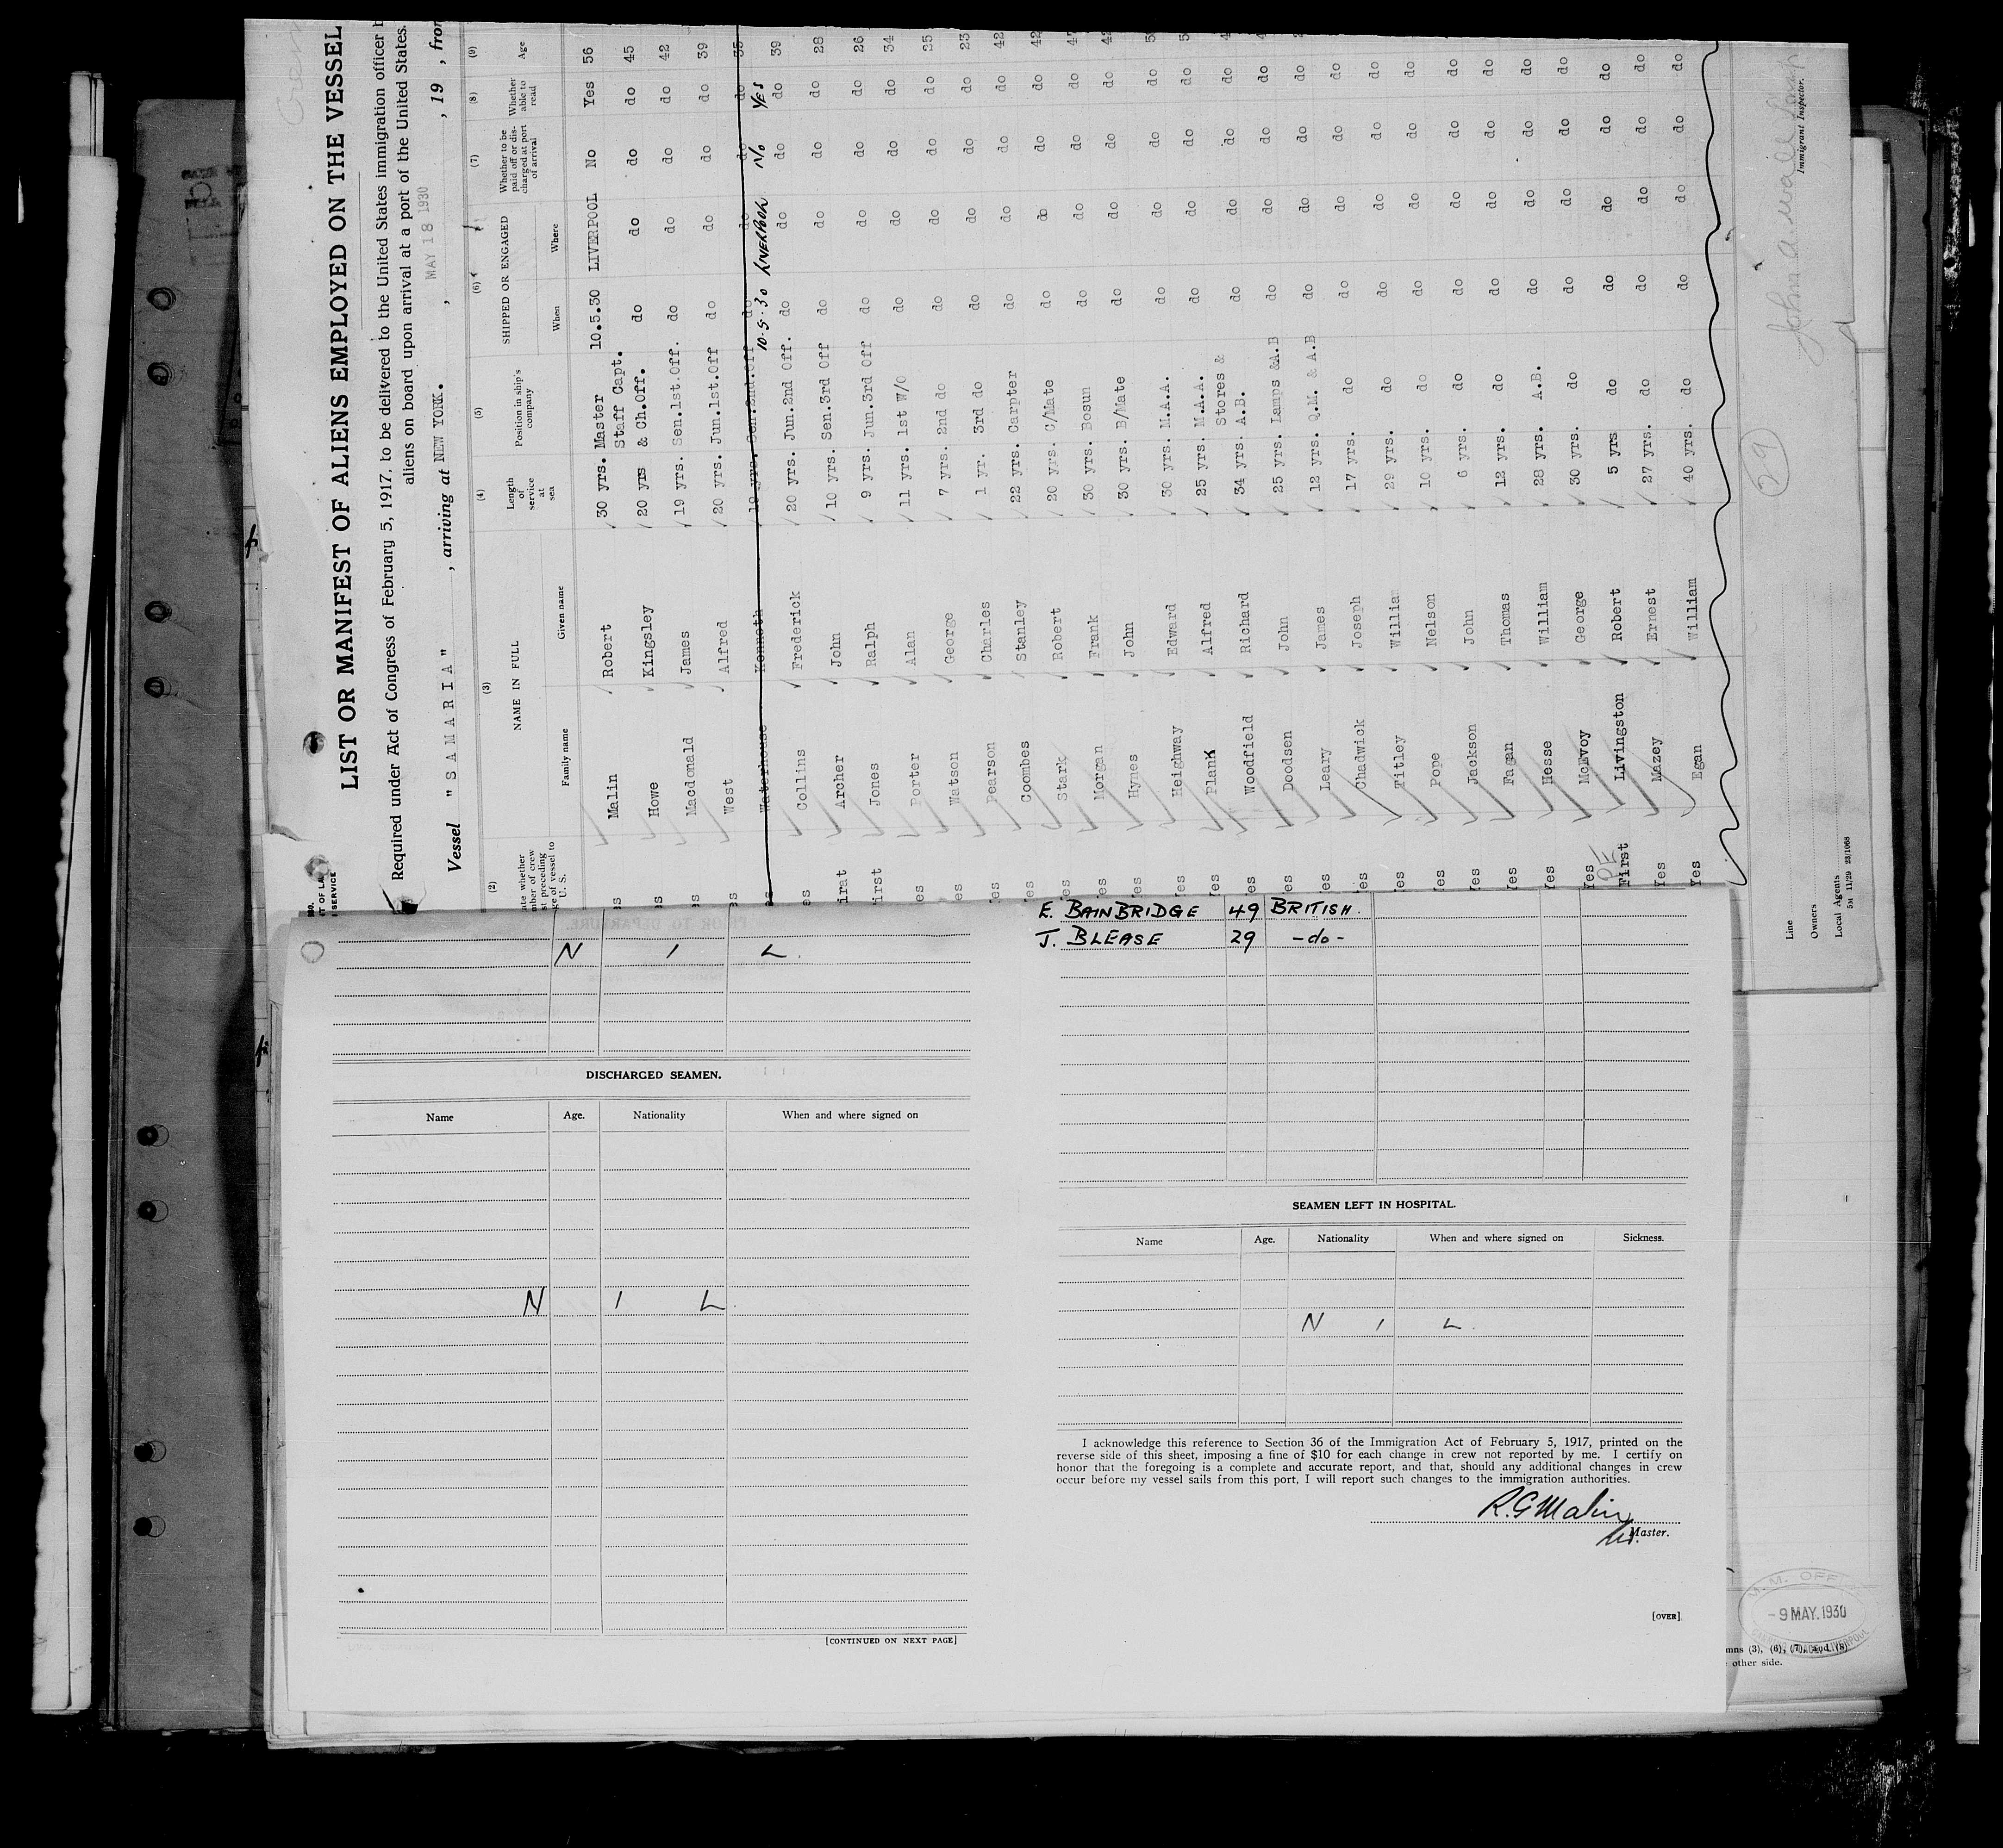 LIST OR MANIFEST OF ALIENS EMPLOYED ON THE VESSEL
Required under Act of Congress of February 5, 1917, to be delivered to the United States immigration officer
aliens on board upon arrival at a port of the United States.
Vessel "SAMARIA", arriving at NEW YORK., MAY 18 1930, 19 , from
(2) (3) (4) (5) (6) (7) (8) (9)
NAME IN FULL
Family name Given name
Length of service at sea
Position in ship's company
SHIPPED OR ENGAGED
When Where
Whether to be paid off or discharged at port of arrival
Whether able to read
Age
Malin Robert 30 yrs. Master 10.5.30 LIVERPOOL No Yes 56
Howe Kingsley 20 yrs Staff Capt. & Ch.Off. do do do do 45
Macdonald James 19 yrs. Sen.1st.Off. do do do do 42
West Alfred 20 yrs. Jun.1st.Off do do do do 39
Waterhouse Kenneth 10 yrs. Sen.2nd.Off do do do do 35
10.5.30 LIVERPOOL No YES
Collins Frederick 20 yrs. Jun.2nd Off. do do do do 39
Archer John 10 yrs. Sen.3rd Off do do do do 28
Jones Ralph 9 yrs. Jun.3rd Off do do do do 26
Porter Alan 11 yrs. 1st W/O do do do do 34
Watson George 7 yrs. 2nd do do do do do 25
Pearson Charles 1 yr. 3rd do do do do do 23
Coombes Stanley 22 yrs. Carpter do do do do 42
Stark Robert 20 yrs. C/Mate do do do do
Morgan Frank 30 yrs. Bosun do do do do
Hynes John 30 yrs. B/Mate do do do do
Heighway Edward 30 yrs. M.A.A. do do do do
Plank Alfred 25 yrs. M.A.A. do do do do
Woodfield Richard 34 yrs. Stores & A.B. do do do do
Doodsen John 25 yrs. Lamps &A.B do do do do
Leary James 12 yrs. Q.M. & A.B do do do do
Chadwick Joseph 17 yrs. do do do do do
Titley William 29 yrs. do do do do do
Pope Nelson 10 yrs. do do do do do
Jackson John 6 yrs. do do do do do
Fagan Thomas 12 yrs. do do do do do
Hesse William 28 yrs. A.B. do do do do
Yes McEvoy George 30 yrs. do do do do do
First Livingston Robert 5 yrs do do do do do
Yes Mazey Ernest 27 yrs. do do do do do
Yes Egan William 40 yrs. do do do do do
29
Immigrant Inspector.
Line
Owners
Local Agents
5M 11/29 23/1068
N I L
DISCHARGED SEAMEN.
Name Age. Nationality When and where signed on
N I L
[CONTINUED ON NEXT PAGE]
E. BAINBRIDGE 49 BRITISH.
J. BLEASE 29 -do-
SEAMEN LEFT IN HOSPITAL.
Name Age. Nationality When and where signed on Sickness.
N I L
I acknowledge this reference to Section 36 of the Immigration Act of February 5, 1917, printed on the
reverse side of this sheet, imposing a fine of $10 for each change in crew not reported by me. I certify on
honor that the foregoing is a complete and accurate report, and that, should any additional changes in crew
occur before my vessel sails from this port, I will report such changes to the immigration authorities.
R.G Malin
Master.
[OVER]
- 9 MAY. 1930
(3), (6), (7), and (8)
other side.